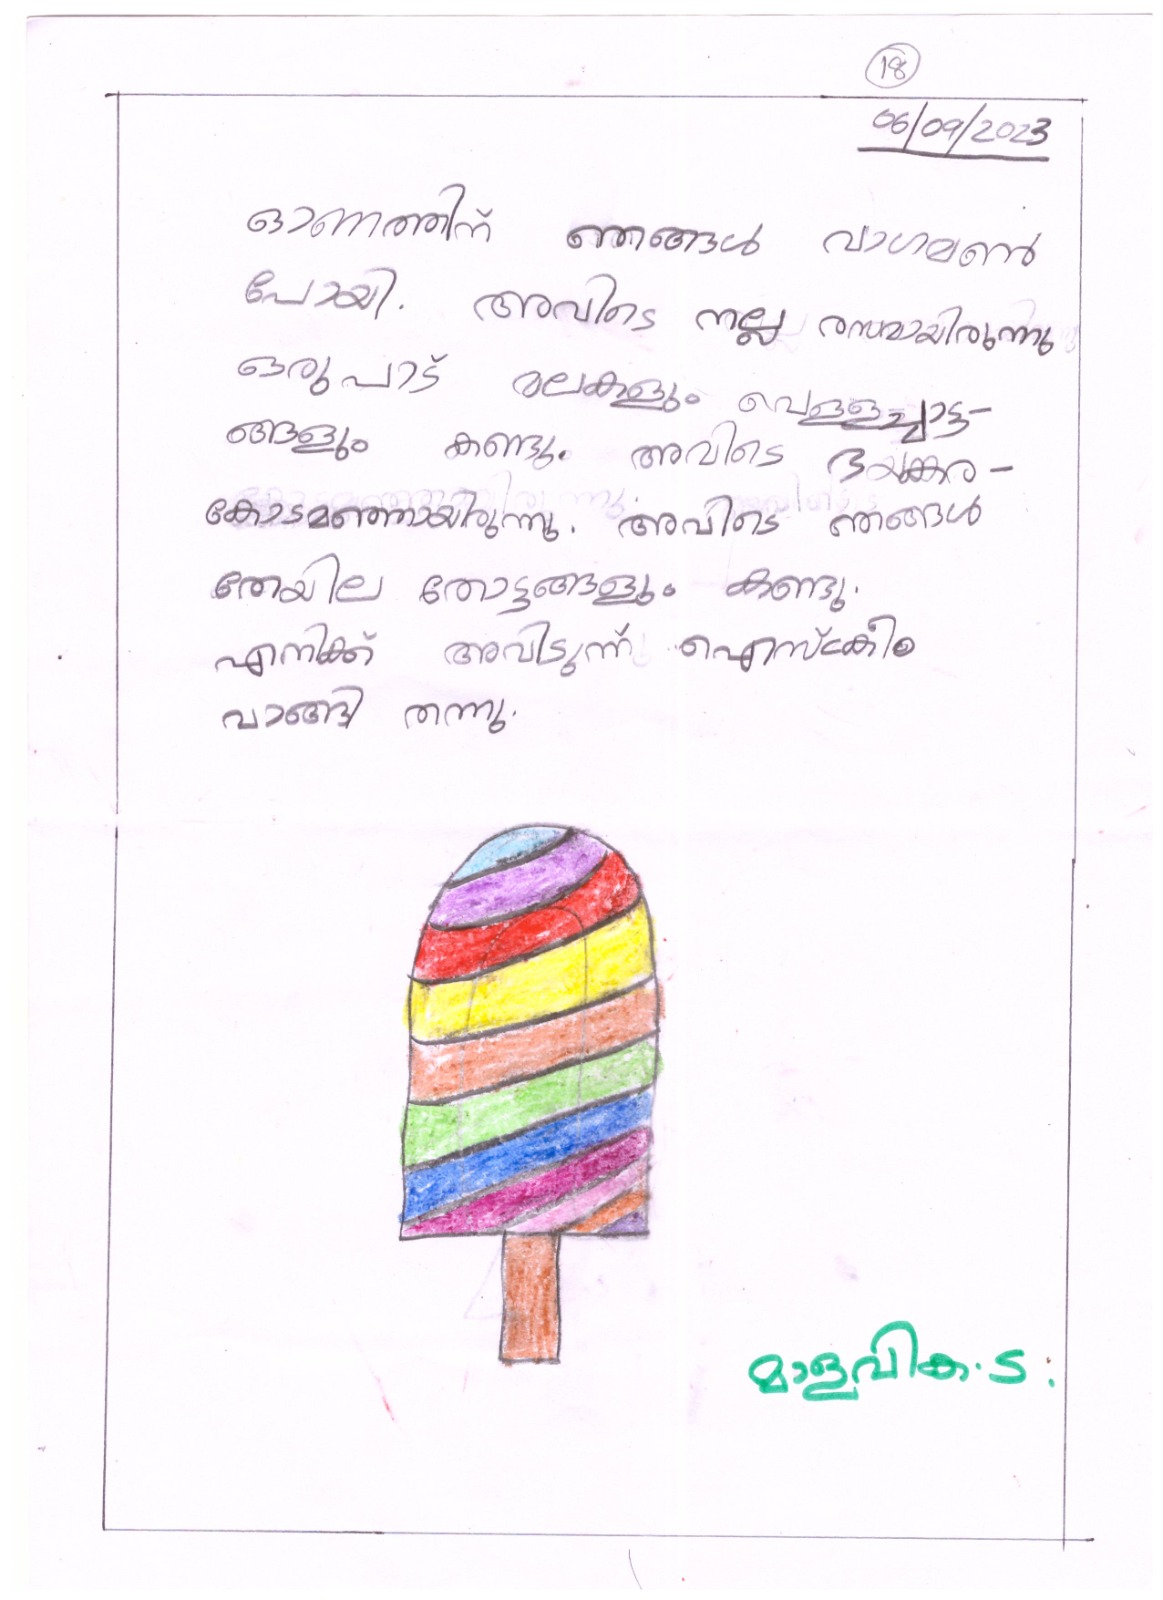 18
06/09/2023
ഓണത്തിന് ഞങ്ങൾ വാഗമൺ
പോയി. അവിടെ നല്ല രസമായിരുന്നു
ഒരുപാട് മലകളും വെള്ളച്ചാട്ട-
ങ്ങളും കണ്ടു. അവിടെ ഭയങ്കര-
കോടമഞ്ഞായിരുന്നു. അവിടെ ഞങ്ങൾ
തേയില തോട്ടങ്ങളും കണ്ടു.
എനിക്ക് അവിടുന്ന് ഐസ്ക്രീം
വാങ്ങി തന്നു.
മാളവിക.ട.